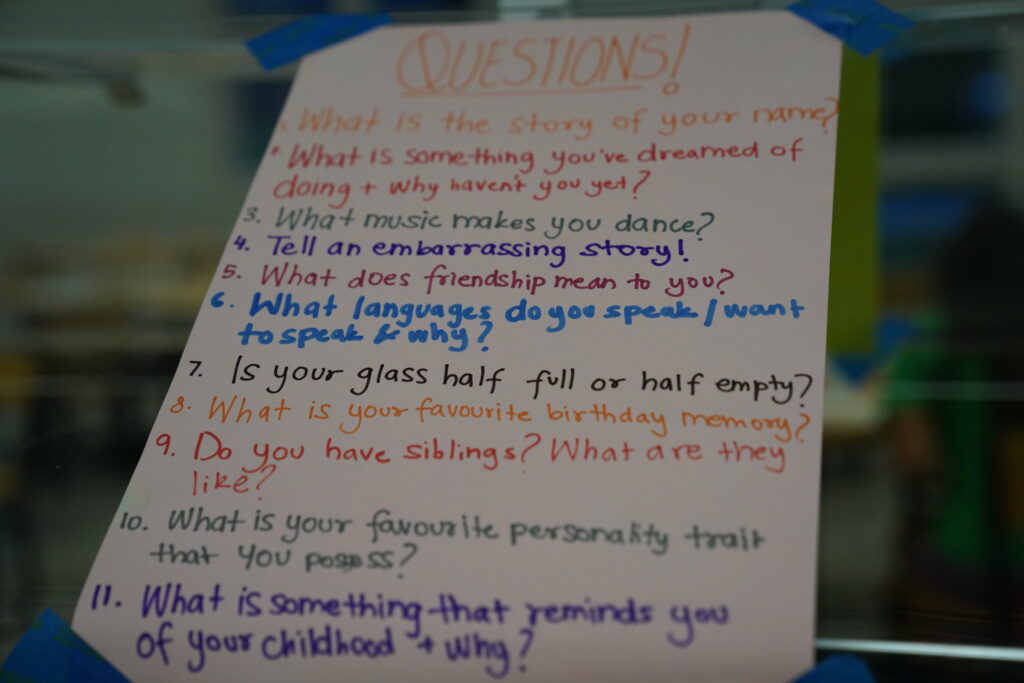 QUESTIONS!
1. What is the story of your name?
2. What is something you've dreamed of
doing + why haven't you yet?
3. What music makes you dance?
4. Tell an embarrassing story!
5. What does friendship mean to you?
6. What languages do you speak / want
to speak & why?
7. Is your glass half full or half empty?
8. What is your favourite birthday memory?
9. Do you have siblings? What are they
like?
10. What is your favourite personality trait
that you posess?
11. What is something that reminds you
of your childhood + why?